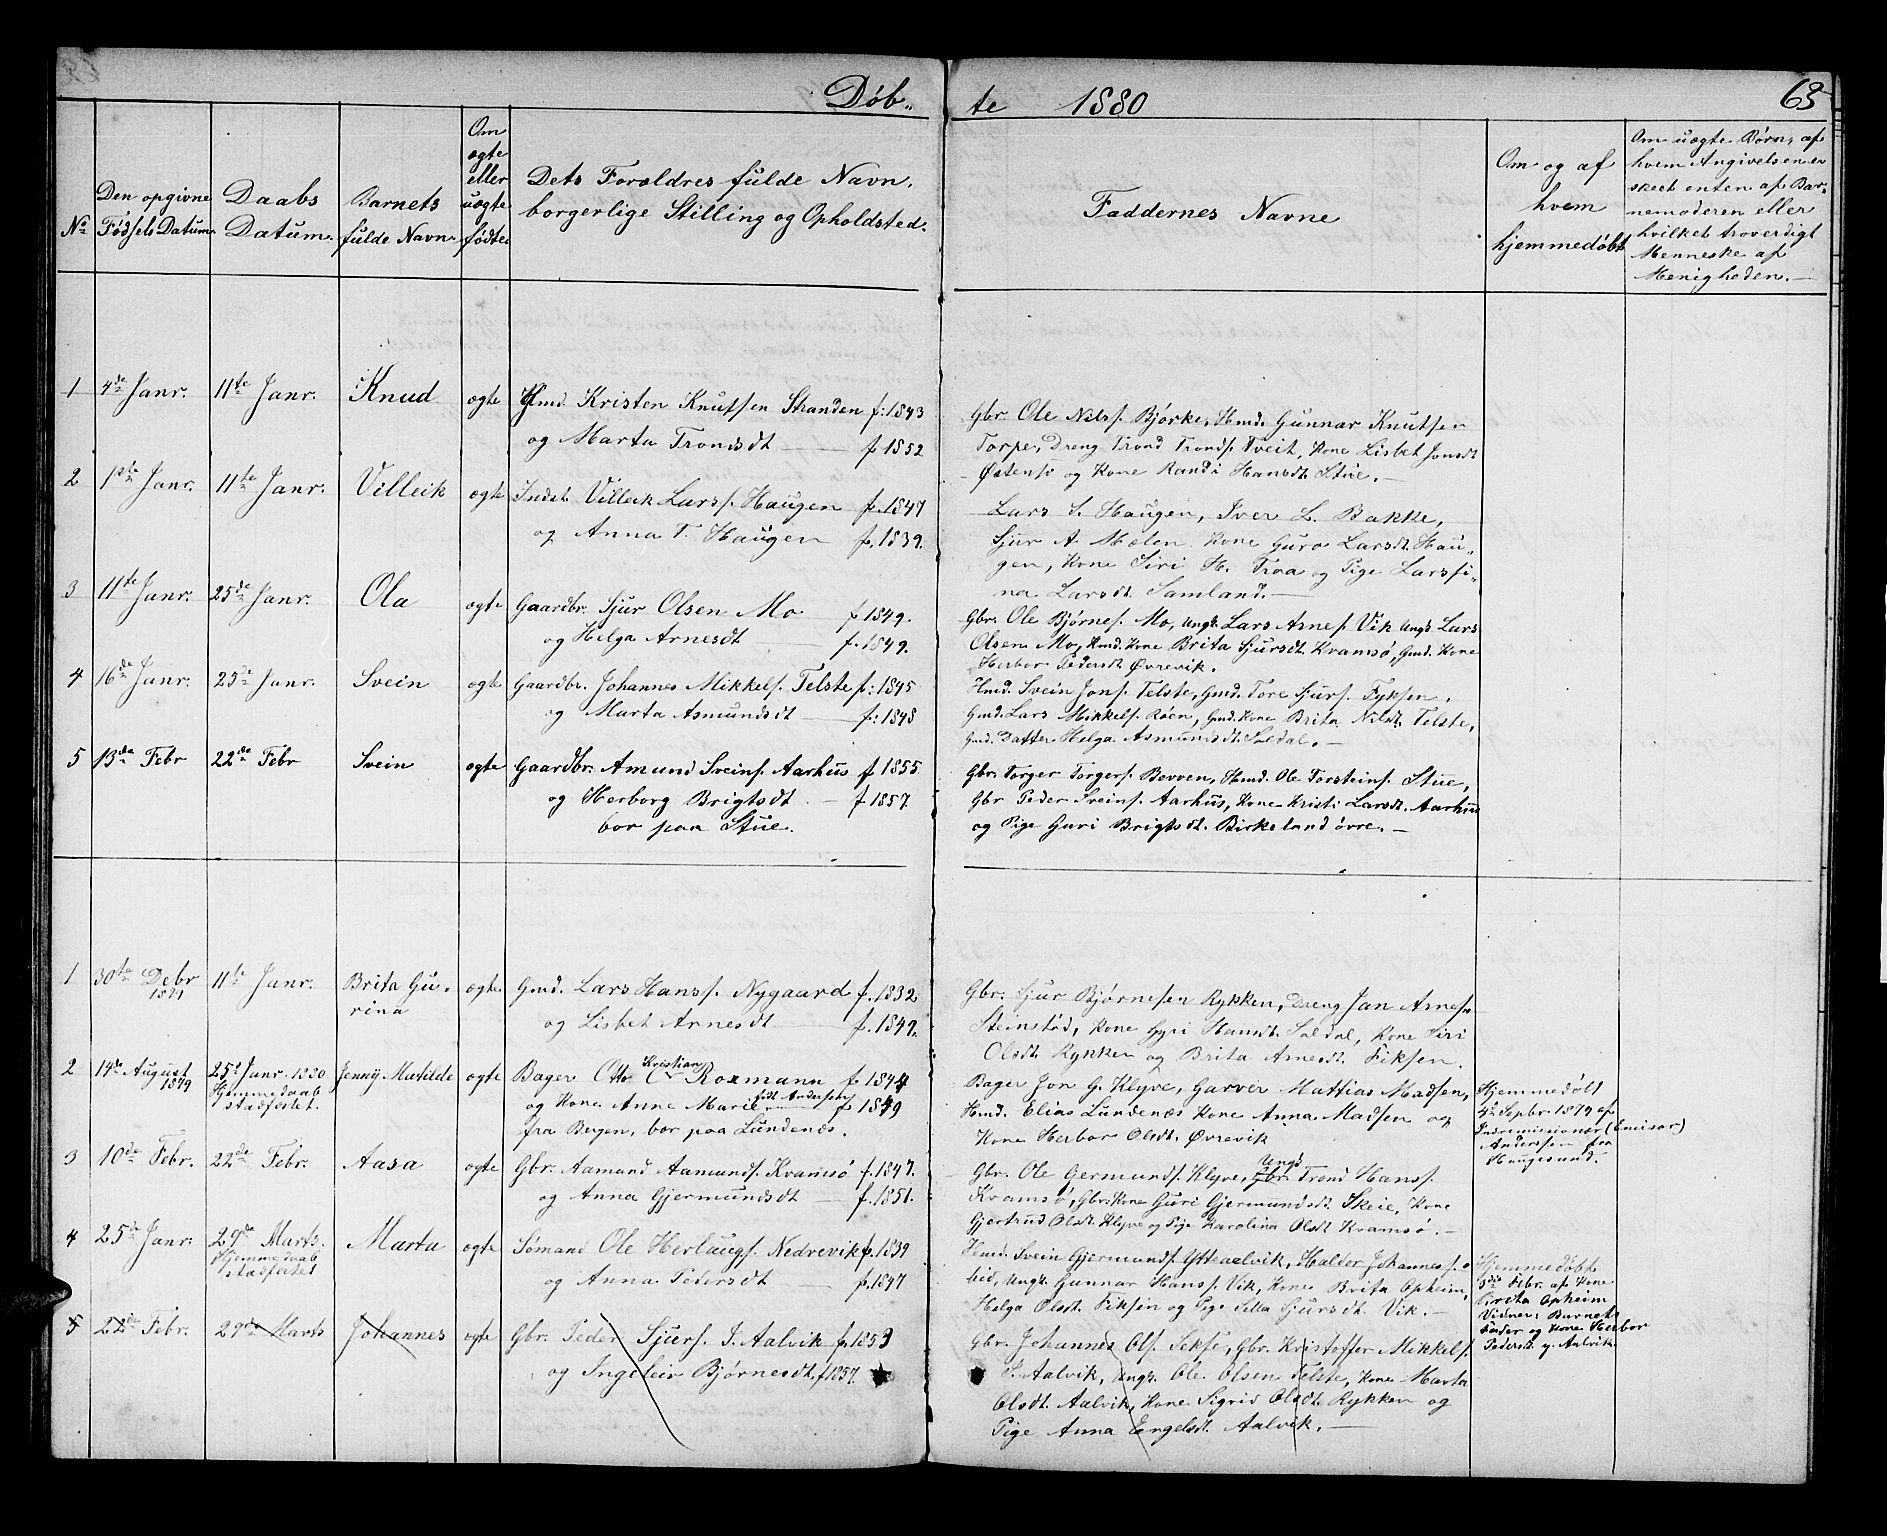 Døb„ te 1880 63
No
Den opgivne Fødsels Datum.
Daabs Datum.
Barnets fulde Navn.
Om ægte eller uægte fødte
Dets Forældres fulde Navn, borgerlige Stilling og Opholdsted.
Faddernes Navne
Om og af hvem hjemmedøbt
Om uægte Børn, af hvem Angivelsen er skeet enten af Barnemoderen eller hvilket troverdigt Menneske af Menigheden.
1 4de Janr. 11te Janr. Knud ægte Hmd. Kristen Knutsen Stranden f: 1843
og Marta Trondsdt f. 1852
Gbr. Ole Nilss. Bjørke, Hmd. Gunnar Knutsen
Torpe, Dreng Trond Tronds. Tveit, Kone Lisbet Jonsdt
Østensø og Kone Randi Hansdt. Stue.
2 1ste Janr. 11te Janr. Villeik ægte Indst. Villeik Larss. Haugen f. 1847
og Anna T. Haugen f. 1839.
Lars S. Haugen, Iver L. Bakke,
Sjur A. Mælen Kone Guro Larsdt. Hau„
gen, Kone Siri H. Troa og Pige Larsi„
na Larsdt. Samland.
3 11te Janr. 25de Janr. Ola ægte Gaardbr. Sjur Olsen Mo f 1849.
og Helga Arnesdt f. 1849.
Gbr. Ole Bjørnes. Mo, Ungk. Lars Arnes. Vik Ungk Lars
Olsen Mo, Hmd. Kone Brita Sjursdt. Kvamsø, Gmd. Kone
Herbor Pedersdt. Øvrevik.
4 16de Janr. 25de Janr. Svein ægte Gaardbr. Johannes Mikkels. Telste f: 1845
og Marta Asmundsdt f: 1848
Hmd. Svein Jons. Telste, Gmd. Tore Sjurs. Fyksen,
Gmd. Lars Mikkels. Røen, Gmd. Kone Brita Nilsdt. Telste,
Gmd. Datter Helga Asmundsdt. Soldal.
5 13de Febr 22de Febr Svein ægte Gaardbr. Amund Sveins. Aarhus f 1855
og Herborg Brigtsdt. f 1857.
bor paa Stue.
Gbr. Torger Torgers. Bevven, Hmd. Ole Torsteins. Stue,
Gbr Peder Sveins. Aarhus, Kone Kristi Larsdt. Aarhus
og Pige Guri Brigtsdt. Birkeland øvre.
1 30te Debr 1879 11te Janr. Brita Gu„ rina ægte Gmd. Lars Hanss. Nygaard f. 1832
og Lisbet Arnesdt f. 1849.
Gbr. Sjur Bjørnesen Rykken, Dreng Jan Arnes
Steinstød, Kone Gyri Hansdt Soldal, Kone Siri
Olsdt. Rykken og Brita Arnesdt. Fiksen.
2 14de August 1879 25de Janr. 1880 Hjemmedaab stadfestet. Jenny Matilde ægte Bager Otto Kristian Rozmann f. 1844
og Kone Anne Marie født Andersdtr f 1849
fra Bergen, bor paa Lundenæs.
Bager Jon G. Klyve, Garver Mattias Madsen,
Hmd. Elias Lundenæs Kone Anna Madsen og
Kone Herbor Olsdt. Øvrevik
Hjemmedøbt
4de Sepbr. 1879 af
Indremissionær (Emisær)
Anderssen fra
Haugesund.
3 10de Febr. 22de Febr. Aasa ægte Gbr. Aamund Aamunds. Kvamsø f. 1847.
og Anna Gjermundsdt f. 1851.
Gbr. Ole Germunds. Klyve, Gbr. Ungk Trond Hanss.
Kvamsø, Gbr. Kone Guri Gjermundsdt. Skeie, Kone
Gjertrud Olsdt. Klyve og Pige Karolina Olsdt Kvamsø.
4 25de Janr. 29de Marts. Hjemmedaab stadfestet Marta ægte Sømand Ole Herlaugs. Nedrevik f. 1839
og Anna Pedersdt f. 1847
Hmd. Svein Gjermunds. Ytreaalvik, Haldor Johanness. i„
bid, Ungk. Gunnar Hanss. Vik, Kone Brita Opheim,
Helga Olsdt. Fiksen og Pige Silla Sjursdt. Vik.
Hjemmedøbt
5de Febr. af Kone
Brita Opheim
Vidner: Barnets
Fader og Kone Herbor
Pedersdt. y. Aalvik.
5 22de Febr. 29de Marts Johannes ægte Gbr. Peder Sjurs. I. Aalvik f. 1853
og Ingeleiv Bjørnesdt, f 1857.
Gbr. Johannes Ols. Sekse, Gbr. Kristoffer Mikkels.
I. Aalvik, Ungk. Ole Olsen Telste, Kone Marta
Olsdt. Aalvik, Kone Sigrid Olsdt Rykken og
Pige Anna Engelsdt. Aalvik.